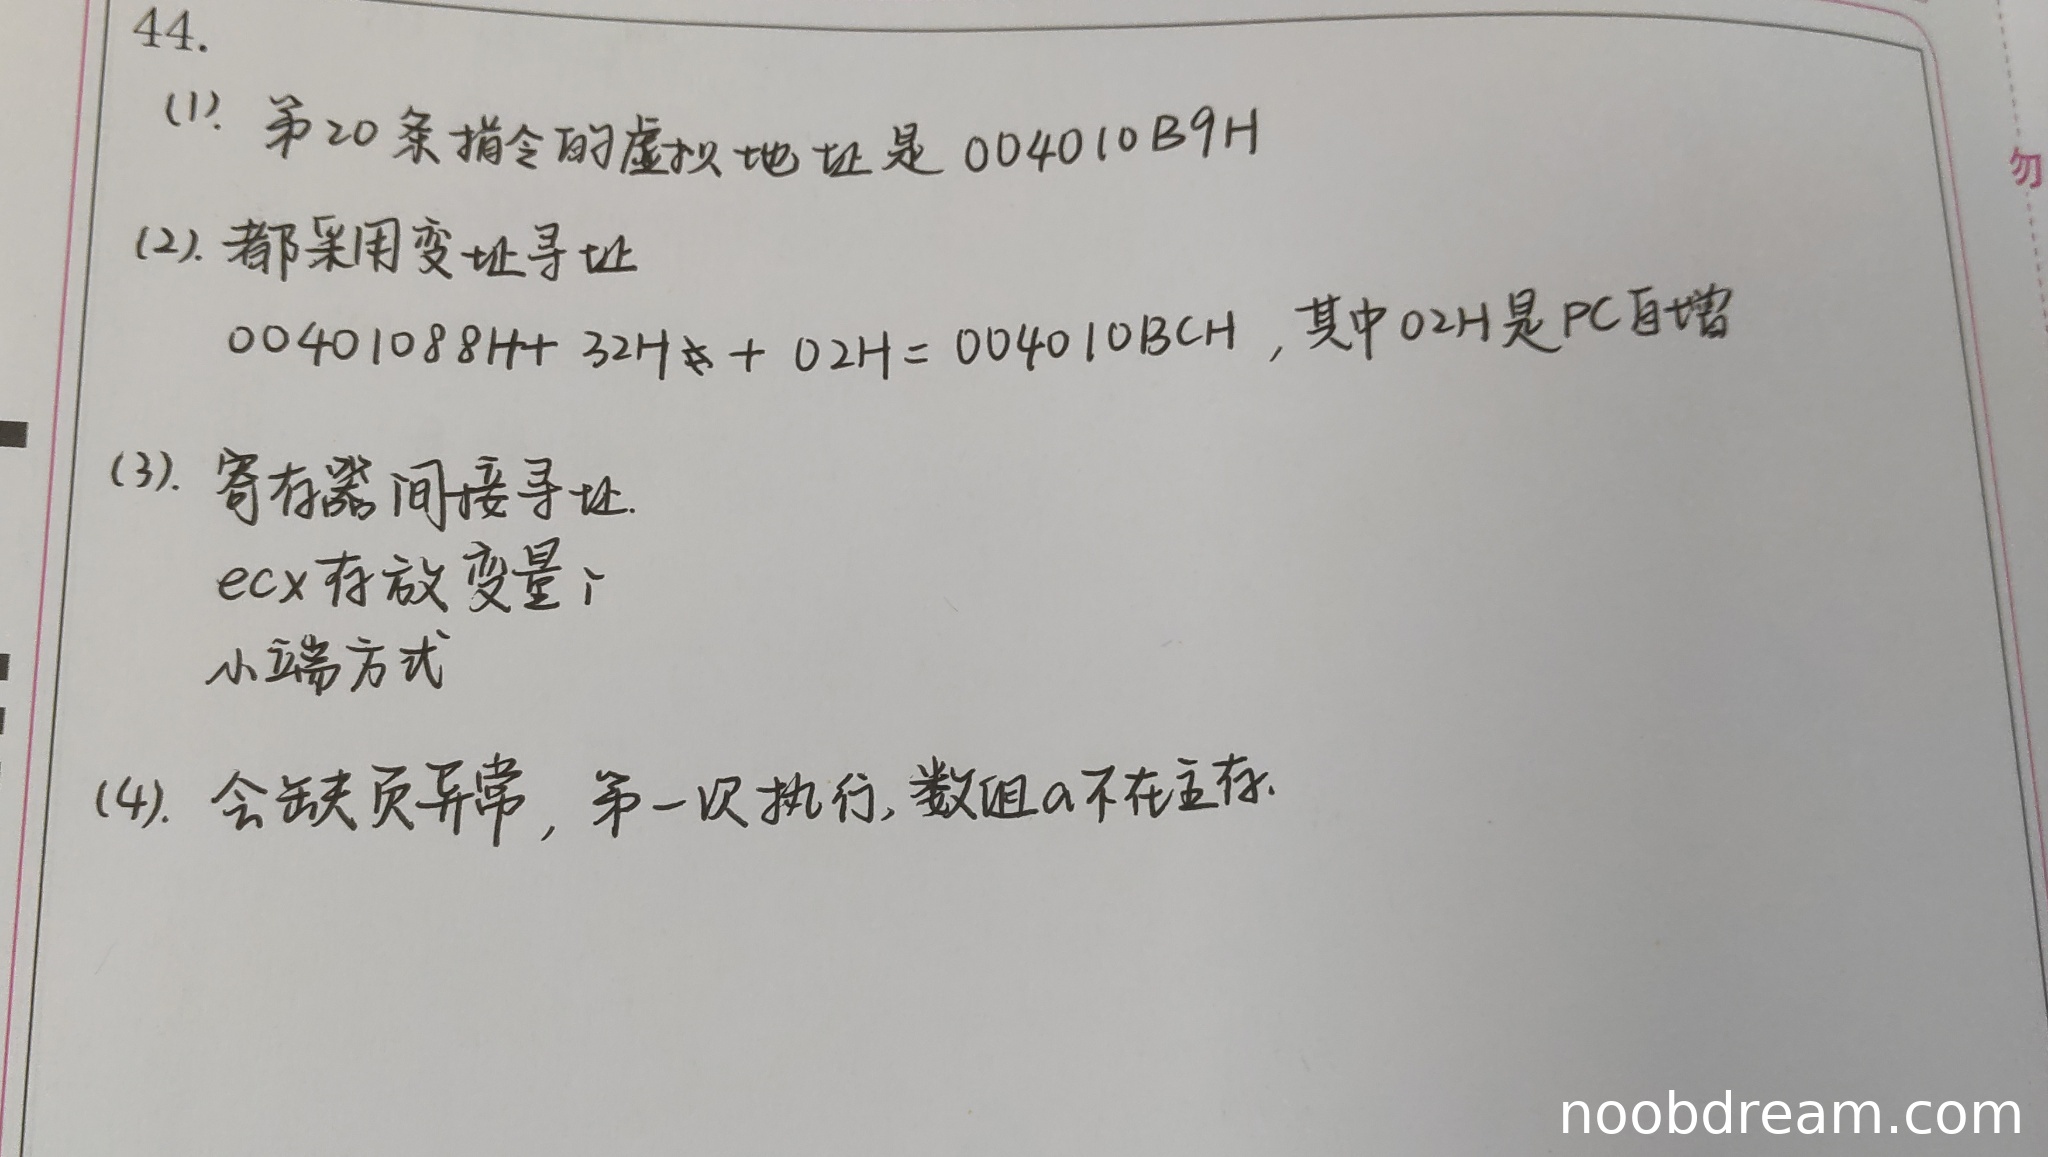 44.
(1). 第20条指令的虚拟地址是 004010B9H
(2). 都采用变址寻址
00401088H + 32H + 02H = 004010BCH , 其中02H是PC自增
(3). 寄存器间接寻址.
ecx存放变量i
小端方式
(4). 会缺页异常, 第一次执行, 数组a不在主存.
勿
noobdream.com